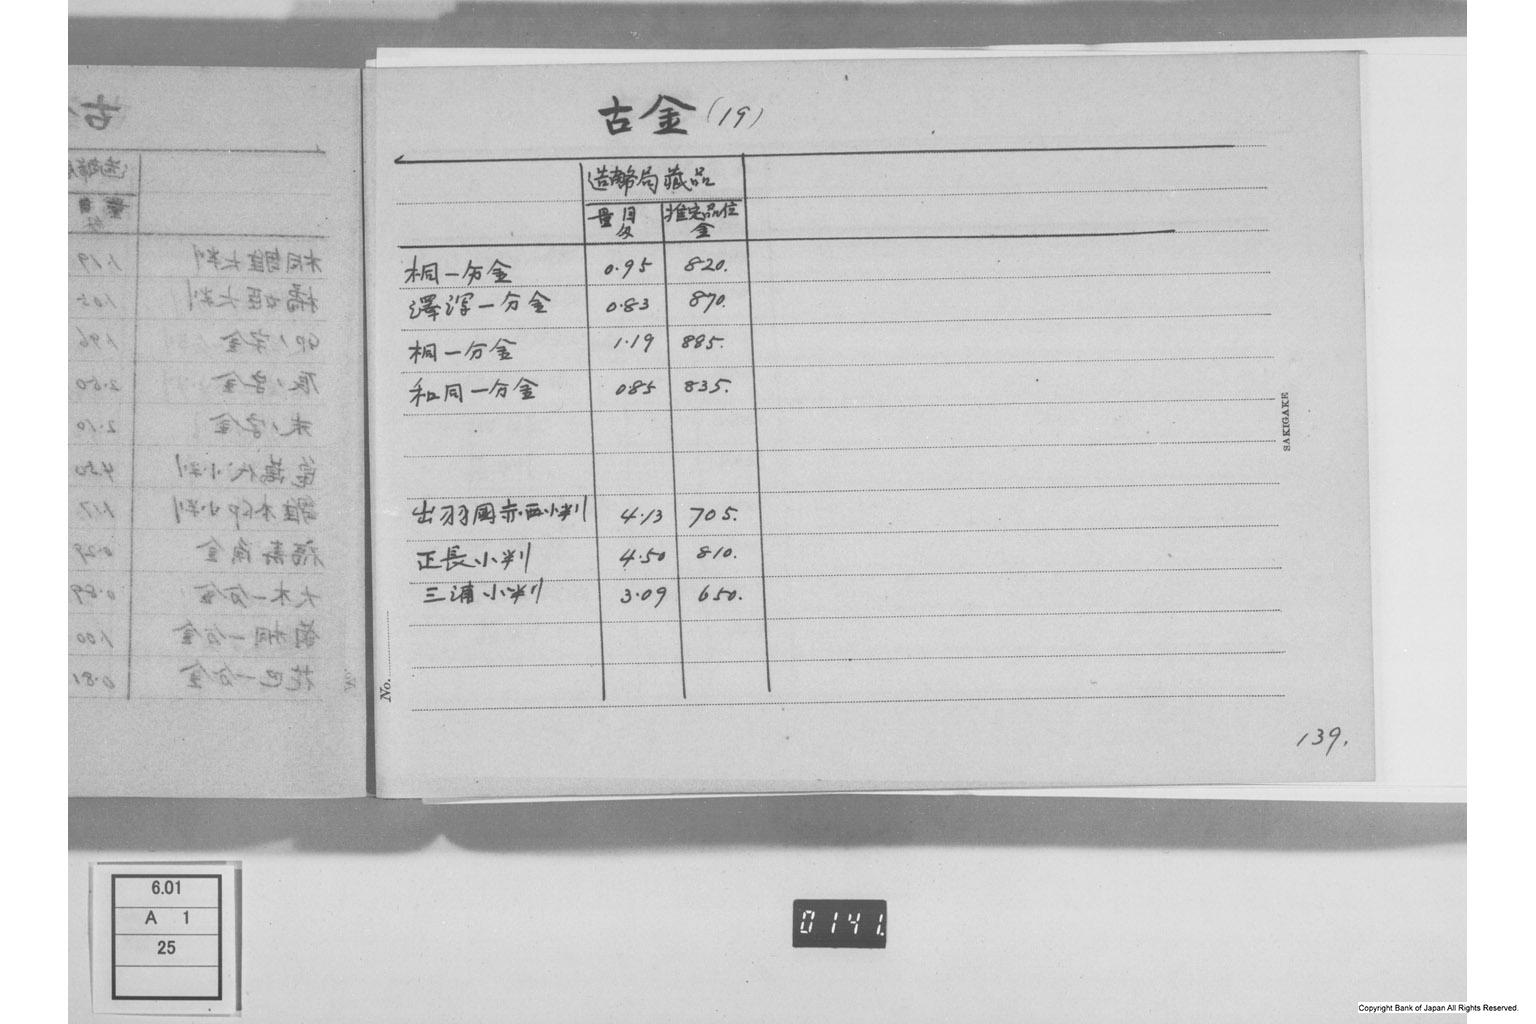 古金(19)
造幣局藏品
量目 推定品位
匁 金
桐一分金 0.95 820.
澤瀉一分金 0.83 870.
桐一分金 1.19 885.
和同一分金 0.85 835.
出羽國赤西小判 4.13 705.
正長小判 4.50 810.
三浦小判 3.09 650.
No.
SAKIGAKE
139.
6.01
A 1
25
0141.
Copyright Bank of Japan All Rights Reserved.